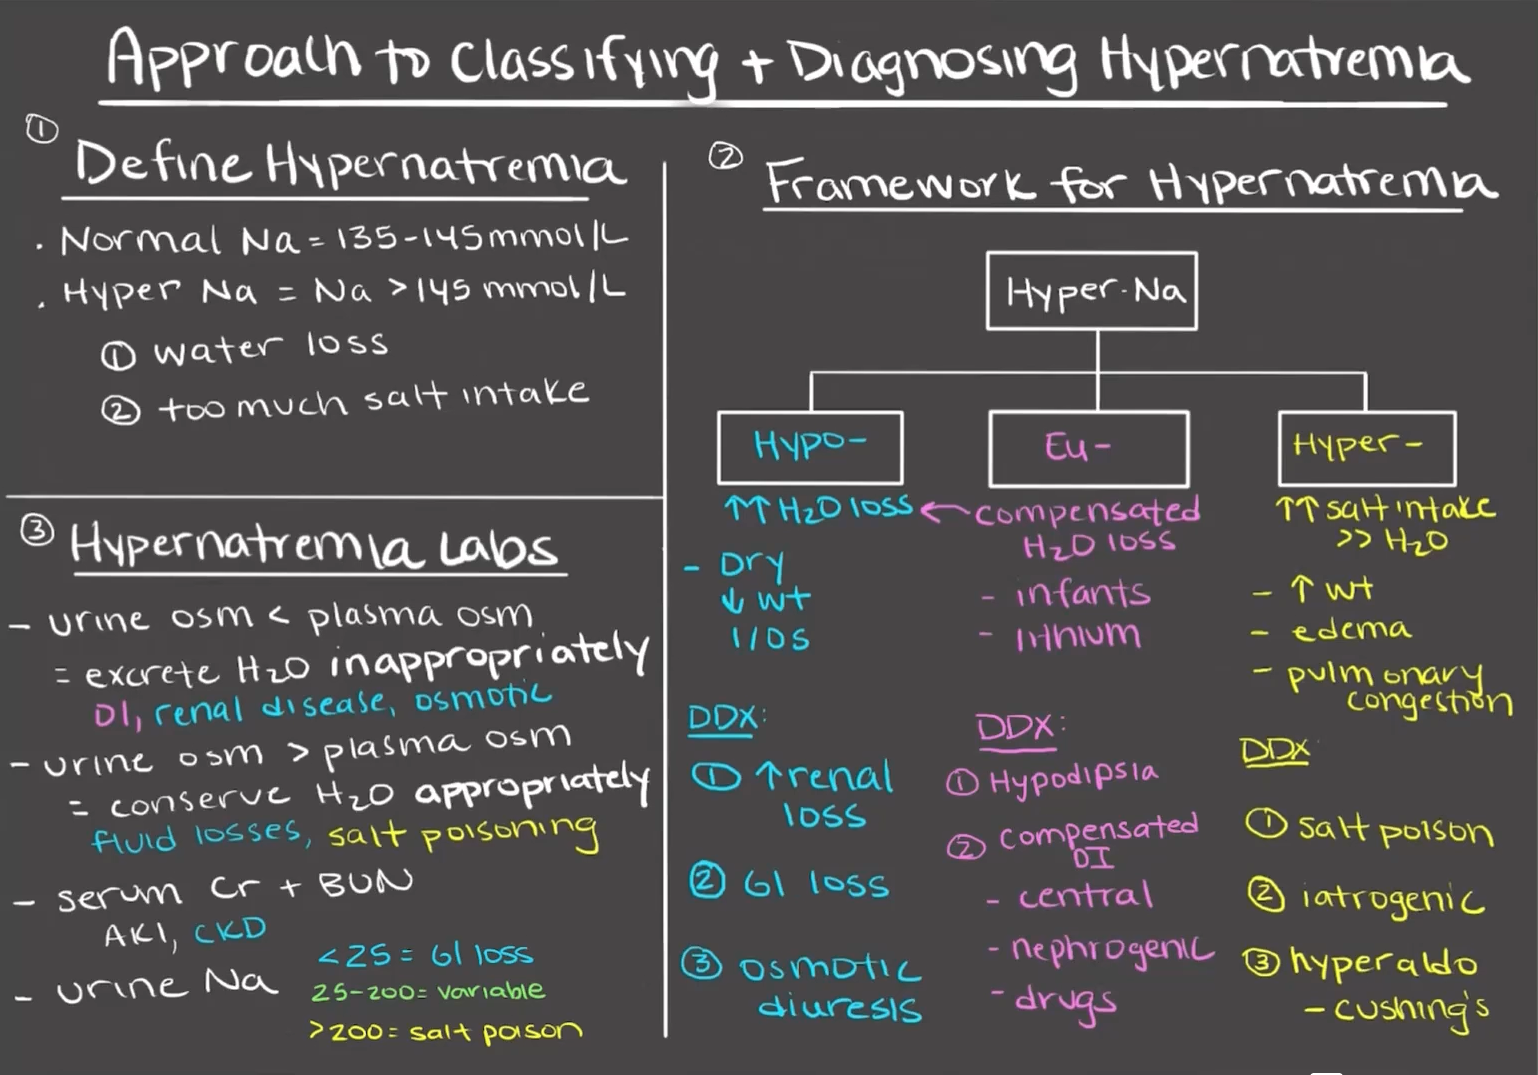 Approach to Classifying + Diagnosing Hypernatremia
①
Define Hypernatremia
. Normal Na = 135-145mmol/L
. Hyper Na = Na >145 mmol/L
① water loss
② too much salt intake
②
Framework for Hypernatremia
Hyper-Na
Hypo-
↑↑ H2O loss
- Dry
↓ wt
I/Os
DDX:
① ↑renal
loss
② GI loss
③ osmotic
diuresis
Eu-
← compensated
H2O loss
- infants
- lithium
DDX:
① Hypodipsia
② compensated
DI
- central
- nephrogenic
- drugs
Hyper-
↑↑ salt intake
>> H2O
- ↑ wt
- edema
- pulmonary
congestion
DDX
① salt poison
② iatrogenic
③ hyperaldo
- cushing's
③ Hypernatremia Labs
- urine osm < plasma osm
= excrete H2O inappropriately
DI, renal disease, osmotic
- urine osm > plasma osm
= conserve H2O appropriately
fluid losses, salt poisoning
- serum Cr + BUN
AKI, CKD
- urine Na
<25 = GI loss
25-200= variable
>200= salt poison